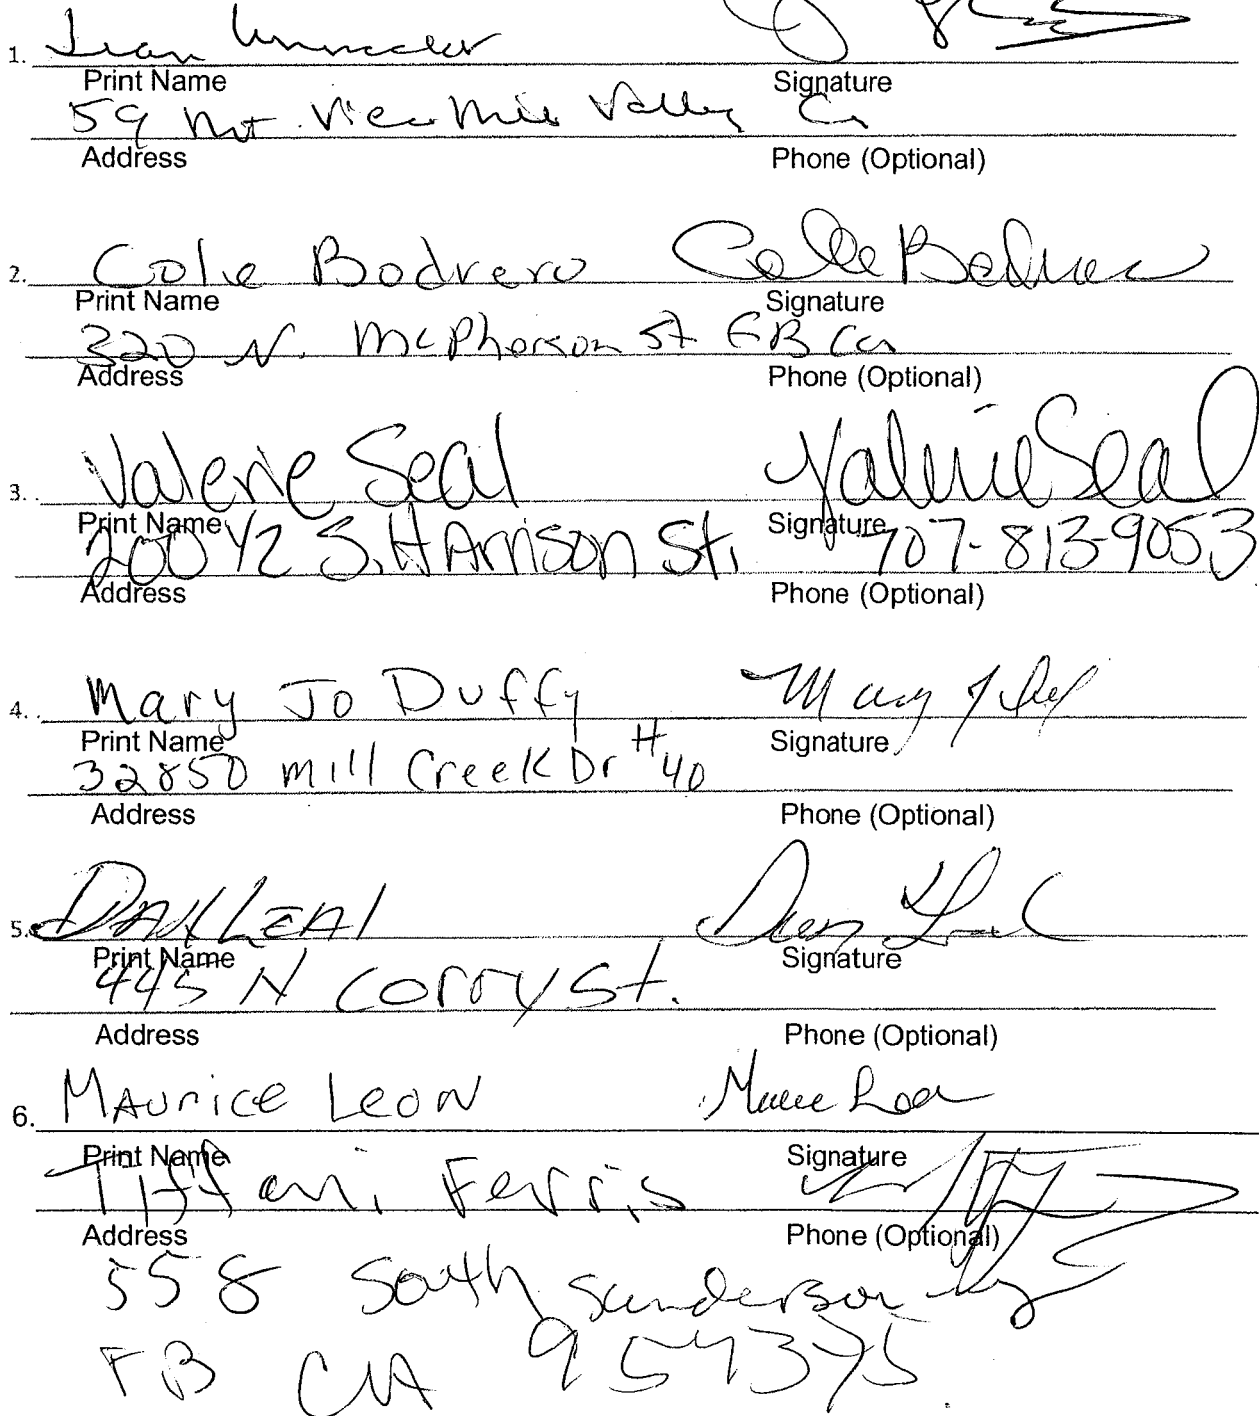 1.
Print Name Signature
59 Valley Ca
Address Phone (Optional)
2. Cole Bodrero Cole Bodrero
Print Name Signature
320 N. McPherson St FB Ca
Address Phone (Optional)
3. Valerie Seal Valerie Seal
Print Name Signature
200 1/2 S. HArrison St. 707-813-9053
Address Phone (Optional)
4. Mary Jo Duffy
Print Name Signature
32850 Mill Creek Dr #40
Address Phone (Optional)
5. DAN LEAl
Print Name Signature
445 N Corry St.
Address Phone (Optional)
6. MAurice LeoN
Print Name Signature
Tiffani Ferris
Address Phone (Optional)
558 South Sanderson
FB CA